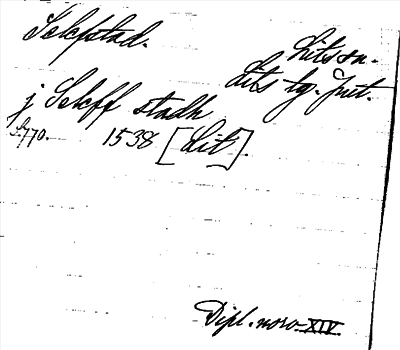 Sekfstad.
Lits sn.
Lits tg. Jmt.
j Sekff stadh
s. 770. 1538 [Lit].
Dipl. norv. XIV.